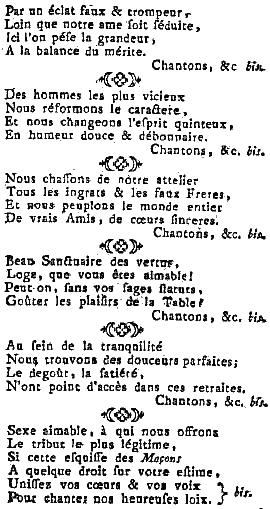 Par un éclat faux & trompeur,
Loin que notre ame ſoit ſéduite,
Ici l'on péſe la grandeur,
A la balance du mérite.
Chantons, &c bis.
Des hommes les plus vicieux
Nous réformons le caractere,
Et nous changeons l'eſprit quinteux,
En humeur douce & débonnaire.
Chantons, &c. bis.
Nous chaſſons de nôtre attelier
Tous les ingrats & les faux Freres,
Et nous peuplons le monde entier
De vrais Amis, de cœurs ſinceres.
Chantons, &c. bis.
Beau Sanctuaire des vertus,
Loge, que vous êtes aimable!
Peut-on, ſans vos ſages ſtatuts,
Goûter les plaiſirs de la Table?
Chantons, &c. bis.
Au ſein de la tranquilité
Nous trouvons des douceurs parfaites;
Le degoût, la ſatiété,
N'ont point d'accès dans ces retraites.
Chantons, &c. bis.
Sexe aimable, à qui nous offrons
Le tribut le plus légitime,
Si cette eſquiſſe des Maçons
A quelque droit ſur votre eſtime,
Uniſſez vos cœurs & vos voix
Pour chanter nos heureuſes loix. } bis.